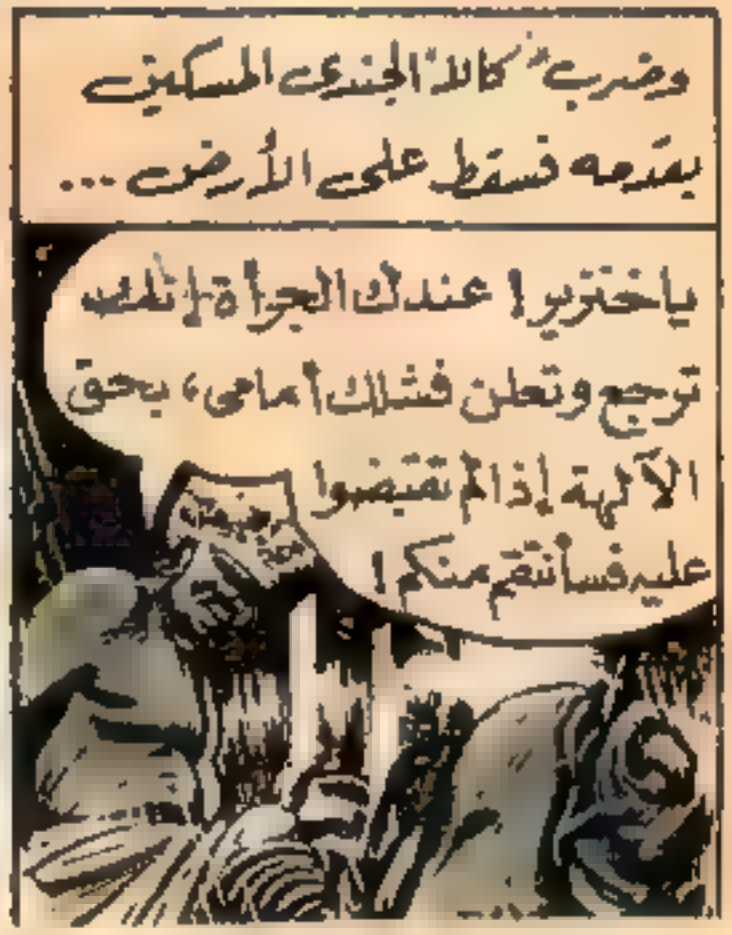 وضرب "كالا" الجندى المسكين
بقدمه فسقط على الأرض ...
ياخنزير! عندك الجرأة إنك
ترجع وتعلن فشلك أمامى، بحق
الآلهة إذا لم تقبضوا
عليه فسأنتقم منكم!